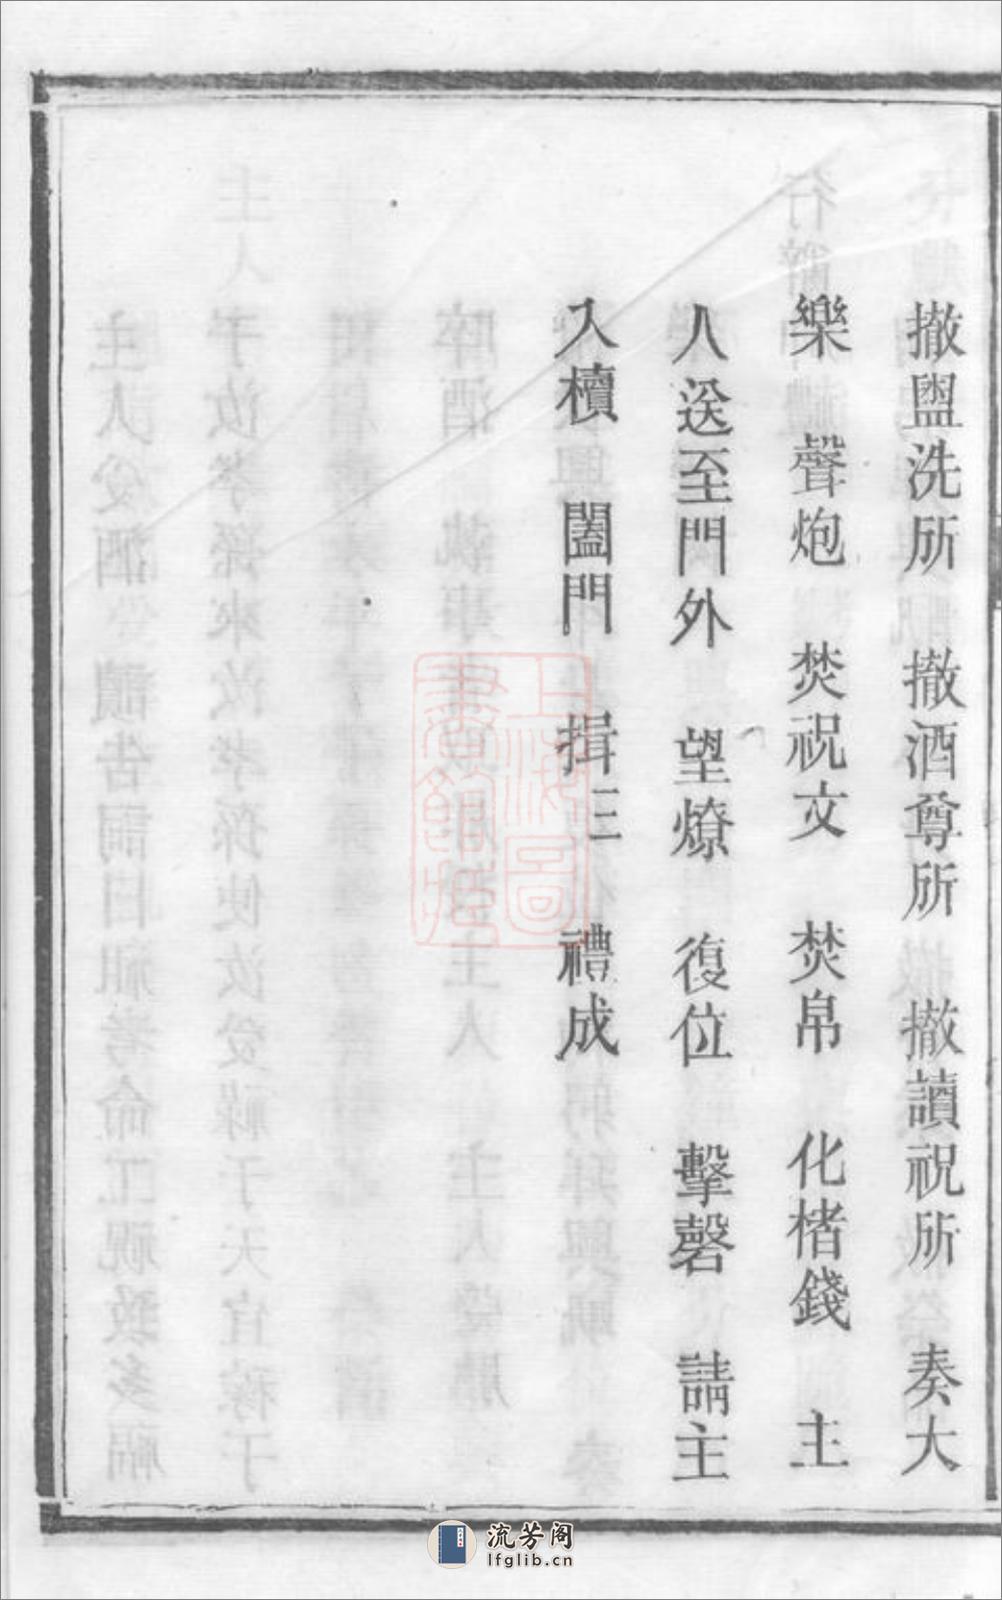 撤盥洗所　撤酒尊所　撤讀祝所　奏大
樂　聲炮　焚祝文　焚帛　化楮錢　主
人送至門外　望燎　復位　擊磬　請主
入櫝　闔門　揖三　禮成
上海圖書館藏
流芳阁
lfglib.cn